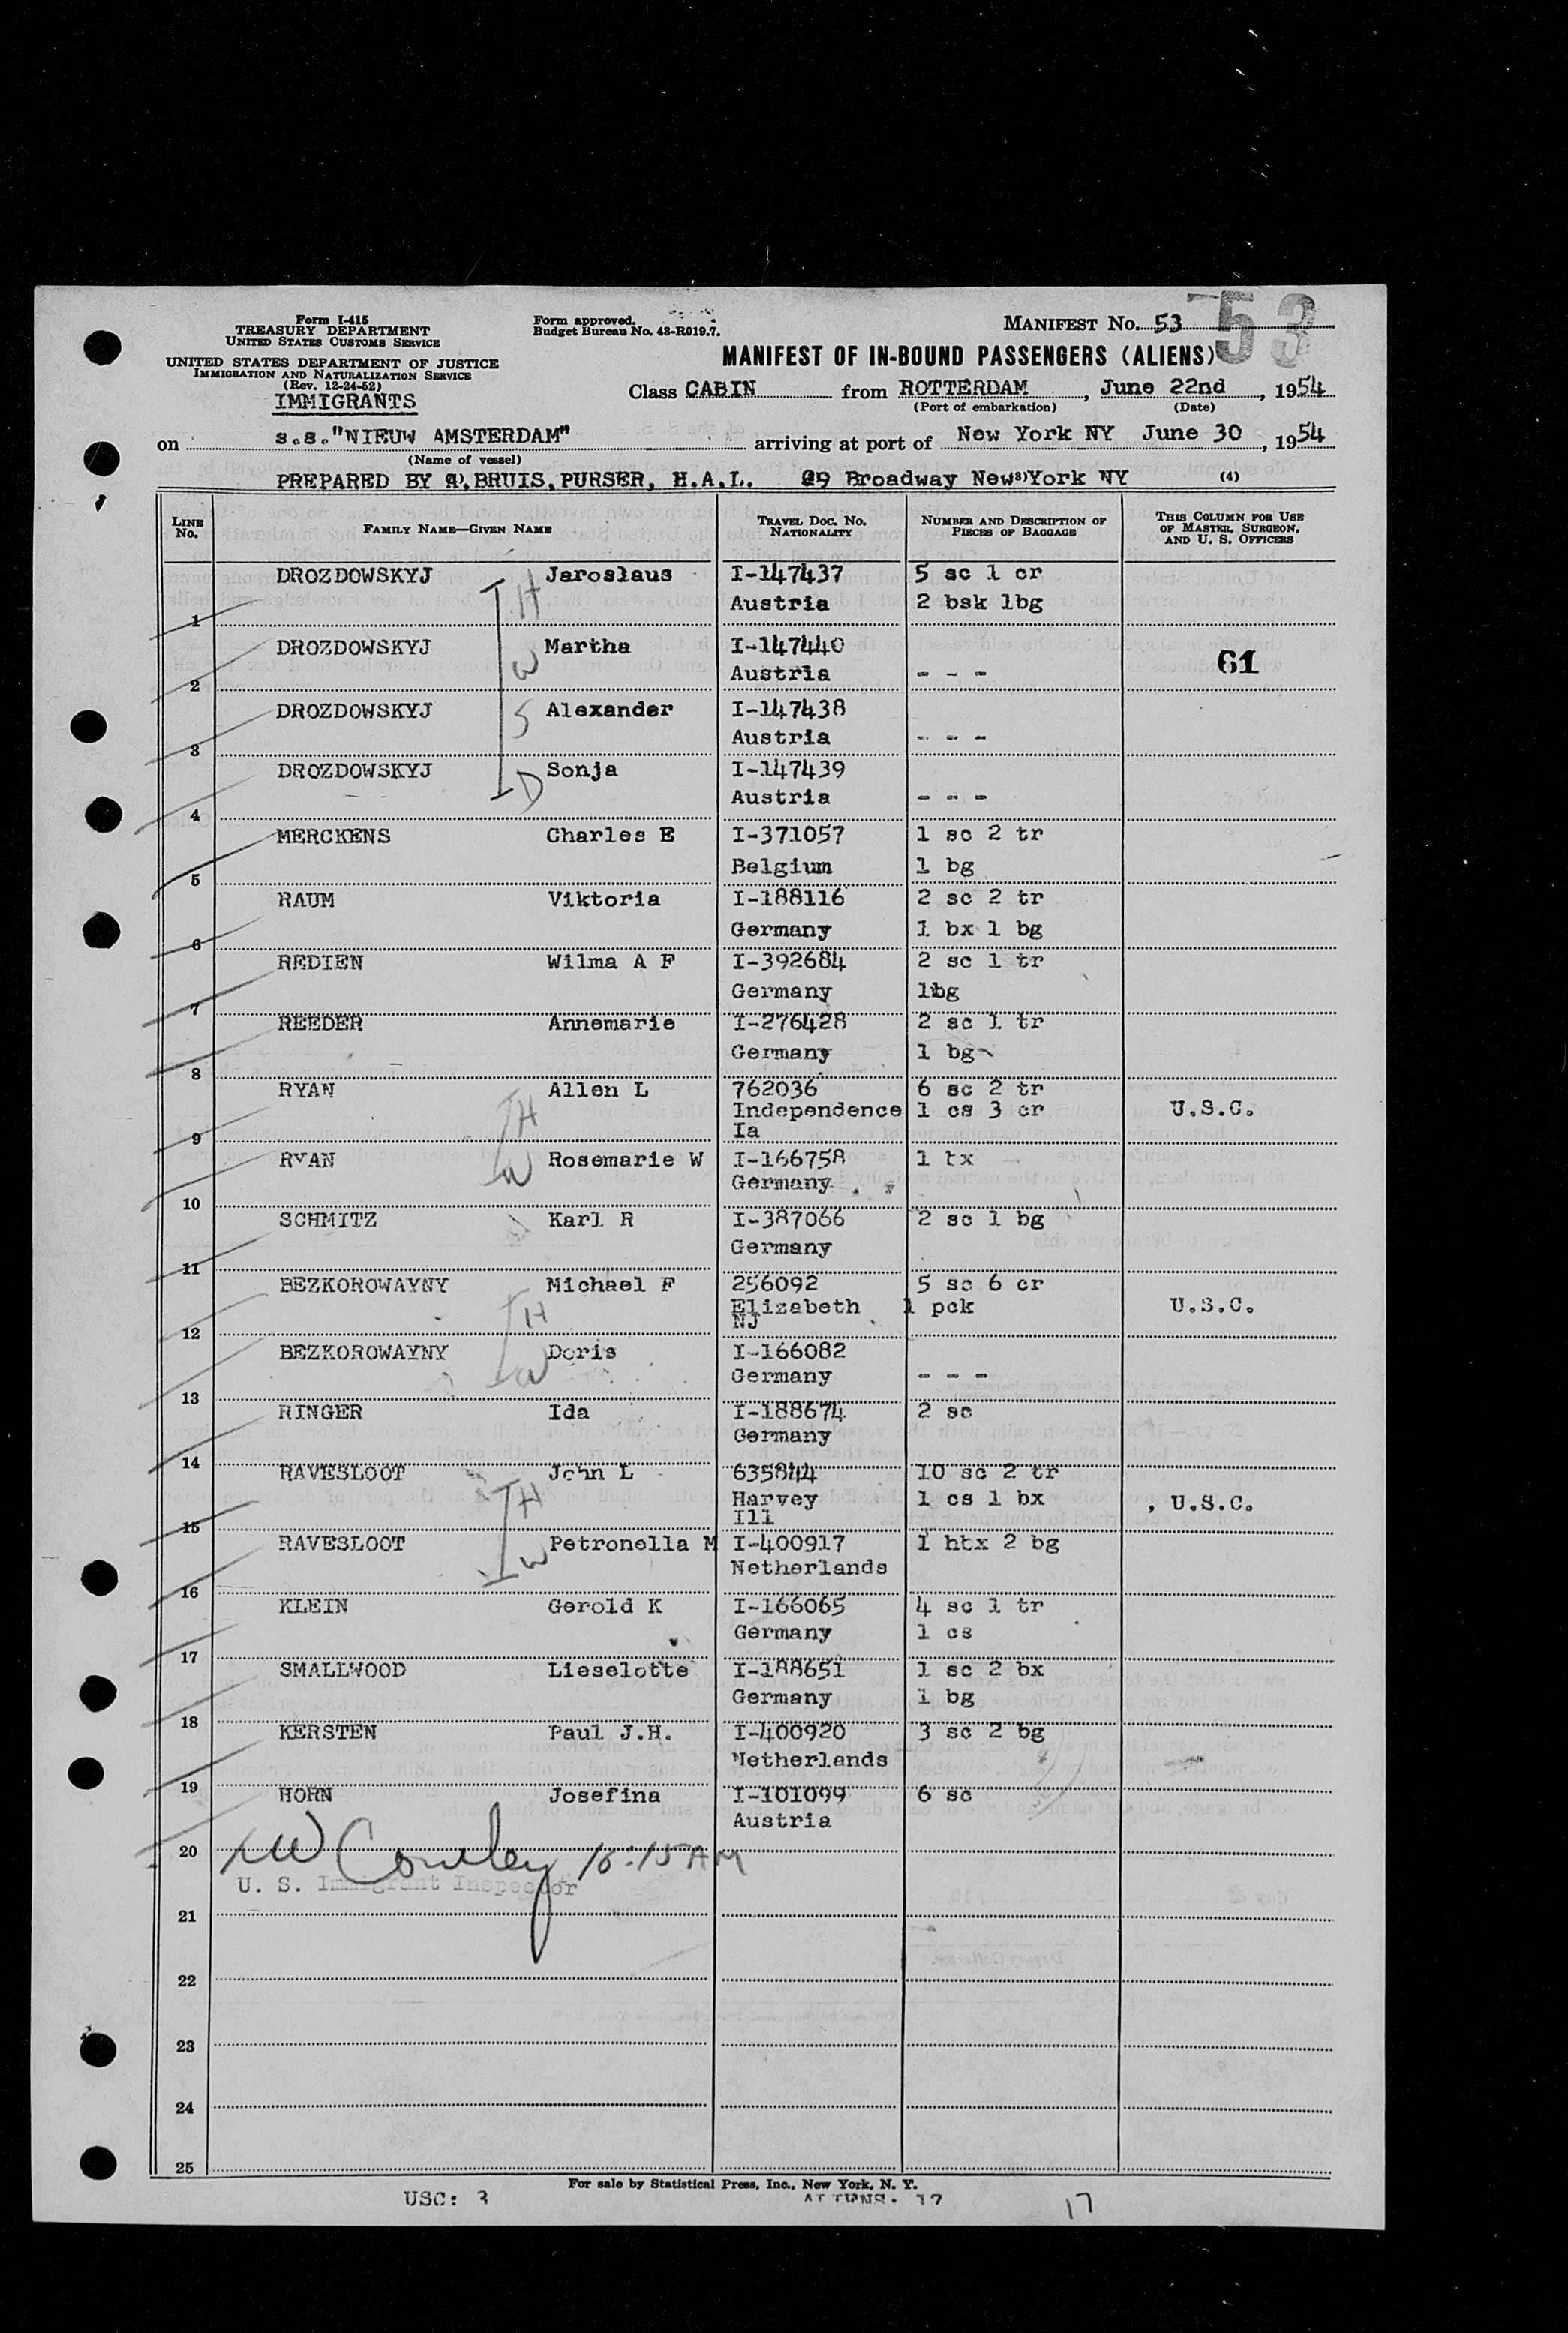 Form I-415
TREASURY DEPARTMENT
UNITED STATES CUSTOMS SERVICE
UNITED STATES DEPARTMENT OF JUSTICE
IMMIGRATION AND NATURALIZATION SERVICE
(Rev. 12-24-52)
IMMIGRANTS
Form approved.
Budget Bureau No. 43-R019.7.
MANIFEST NO. 53
53
MANIFEST OF IN-BOUND PASSENGERS (ALIENS)
Class CABIN from ROTTERDAM, June 22nd, 1954
(Port of embarkation) (Date)
on s.s."NIEUW AMSTERDAM" arriving at port of New York NY June 30, 1954
(Name of vessel)
PREPARED BY BRUIS, PURSER, H.A.L. 29 Broadway New York NY (4)
LINE NO. FAMILY NAME—GIVEN NAME TRAVEL DOC. NO. NATIONALITY NUMBER AND DESCRIPTION OF PIECES OF BAGGAGE THIS COLUMN FOR USE OF MASTER, SURGEON, AND U. S. OFFICERS
DROZDOWSKYJ H Jaroslaus I-147437 5 sc 1 cr
1 Austria 2 bsk 1bg
DROZDOWSKYJ W Martha I-147440
2 Austria - - - 61
DROZDOWSKYJ S Alexander I-147438
3 Austria - - -
DROZDOWSKYJ D Sonja I-147439
4 Austria - - -
MERCKENS Charles E I-371057 1 sc 2 tr
5 Belgium 1 bg
RAUM Viktoria I-188116 2 sc 2 tr
6 Germany 1 bx 1 bg
REDIEN Wilma A F I-392684 2 sc 1 tr
7 Germany 1bg
REEDER Annemarie I-276428 2 sc 1 tr
8 Germany 1 bg
RYAN H Allen L 762036 6 sc 2 tr
Independence 1 cs 3 cr U.S.C.
9 Ia
RYAN W Rosemarie W I-166758 1 tx
10 Germany
SCHMITZ Karl R I-387066 2 sc 1 bg
11 Germany
BEZKOROWAYNY H Michael F 256092 5 sc 6 cr
Elizabeth 1 pck U.S.C.
12 NJ
BEZKOROWAYNY W Doris I-166082
13 Germany - - -
RINGER Ida I-188674 2 sc
14 Germany
RAVESLOOT H John L 635844 10 sc 2 tr
Harvey 1 cs 1 bx U.S.C.
15 Ill
RAVESLOOT W Petronella M I-400917 1 htx 2 bg
16 Netherlands
KLEIN Gerold K I-166065 4 sc 1 tr
17 Germany 1 cs
SMALLWOOD Lieselotte I-188651 1 sc 2 bx
18 Germany 1 bg
KERSTEN Paul J.H. I-400920 3 sc 2 bg
19 Netherlands
HORN Josefina I-101099 6 sc
20 Austria
Cowley 10:15 AM
U. S. Immigrant Inspector
21
22
23
24
25
For sale by Statistical Press, Inc., New York, N. Y.
USC: 3 17 17